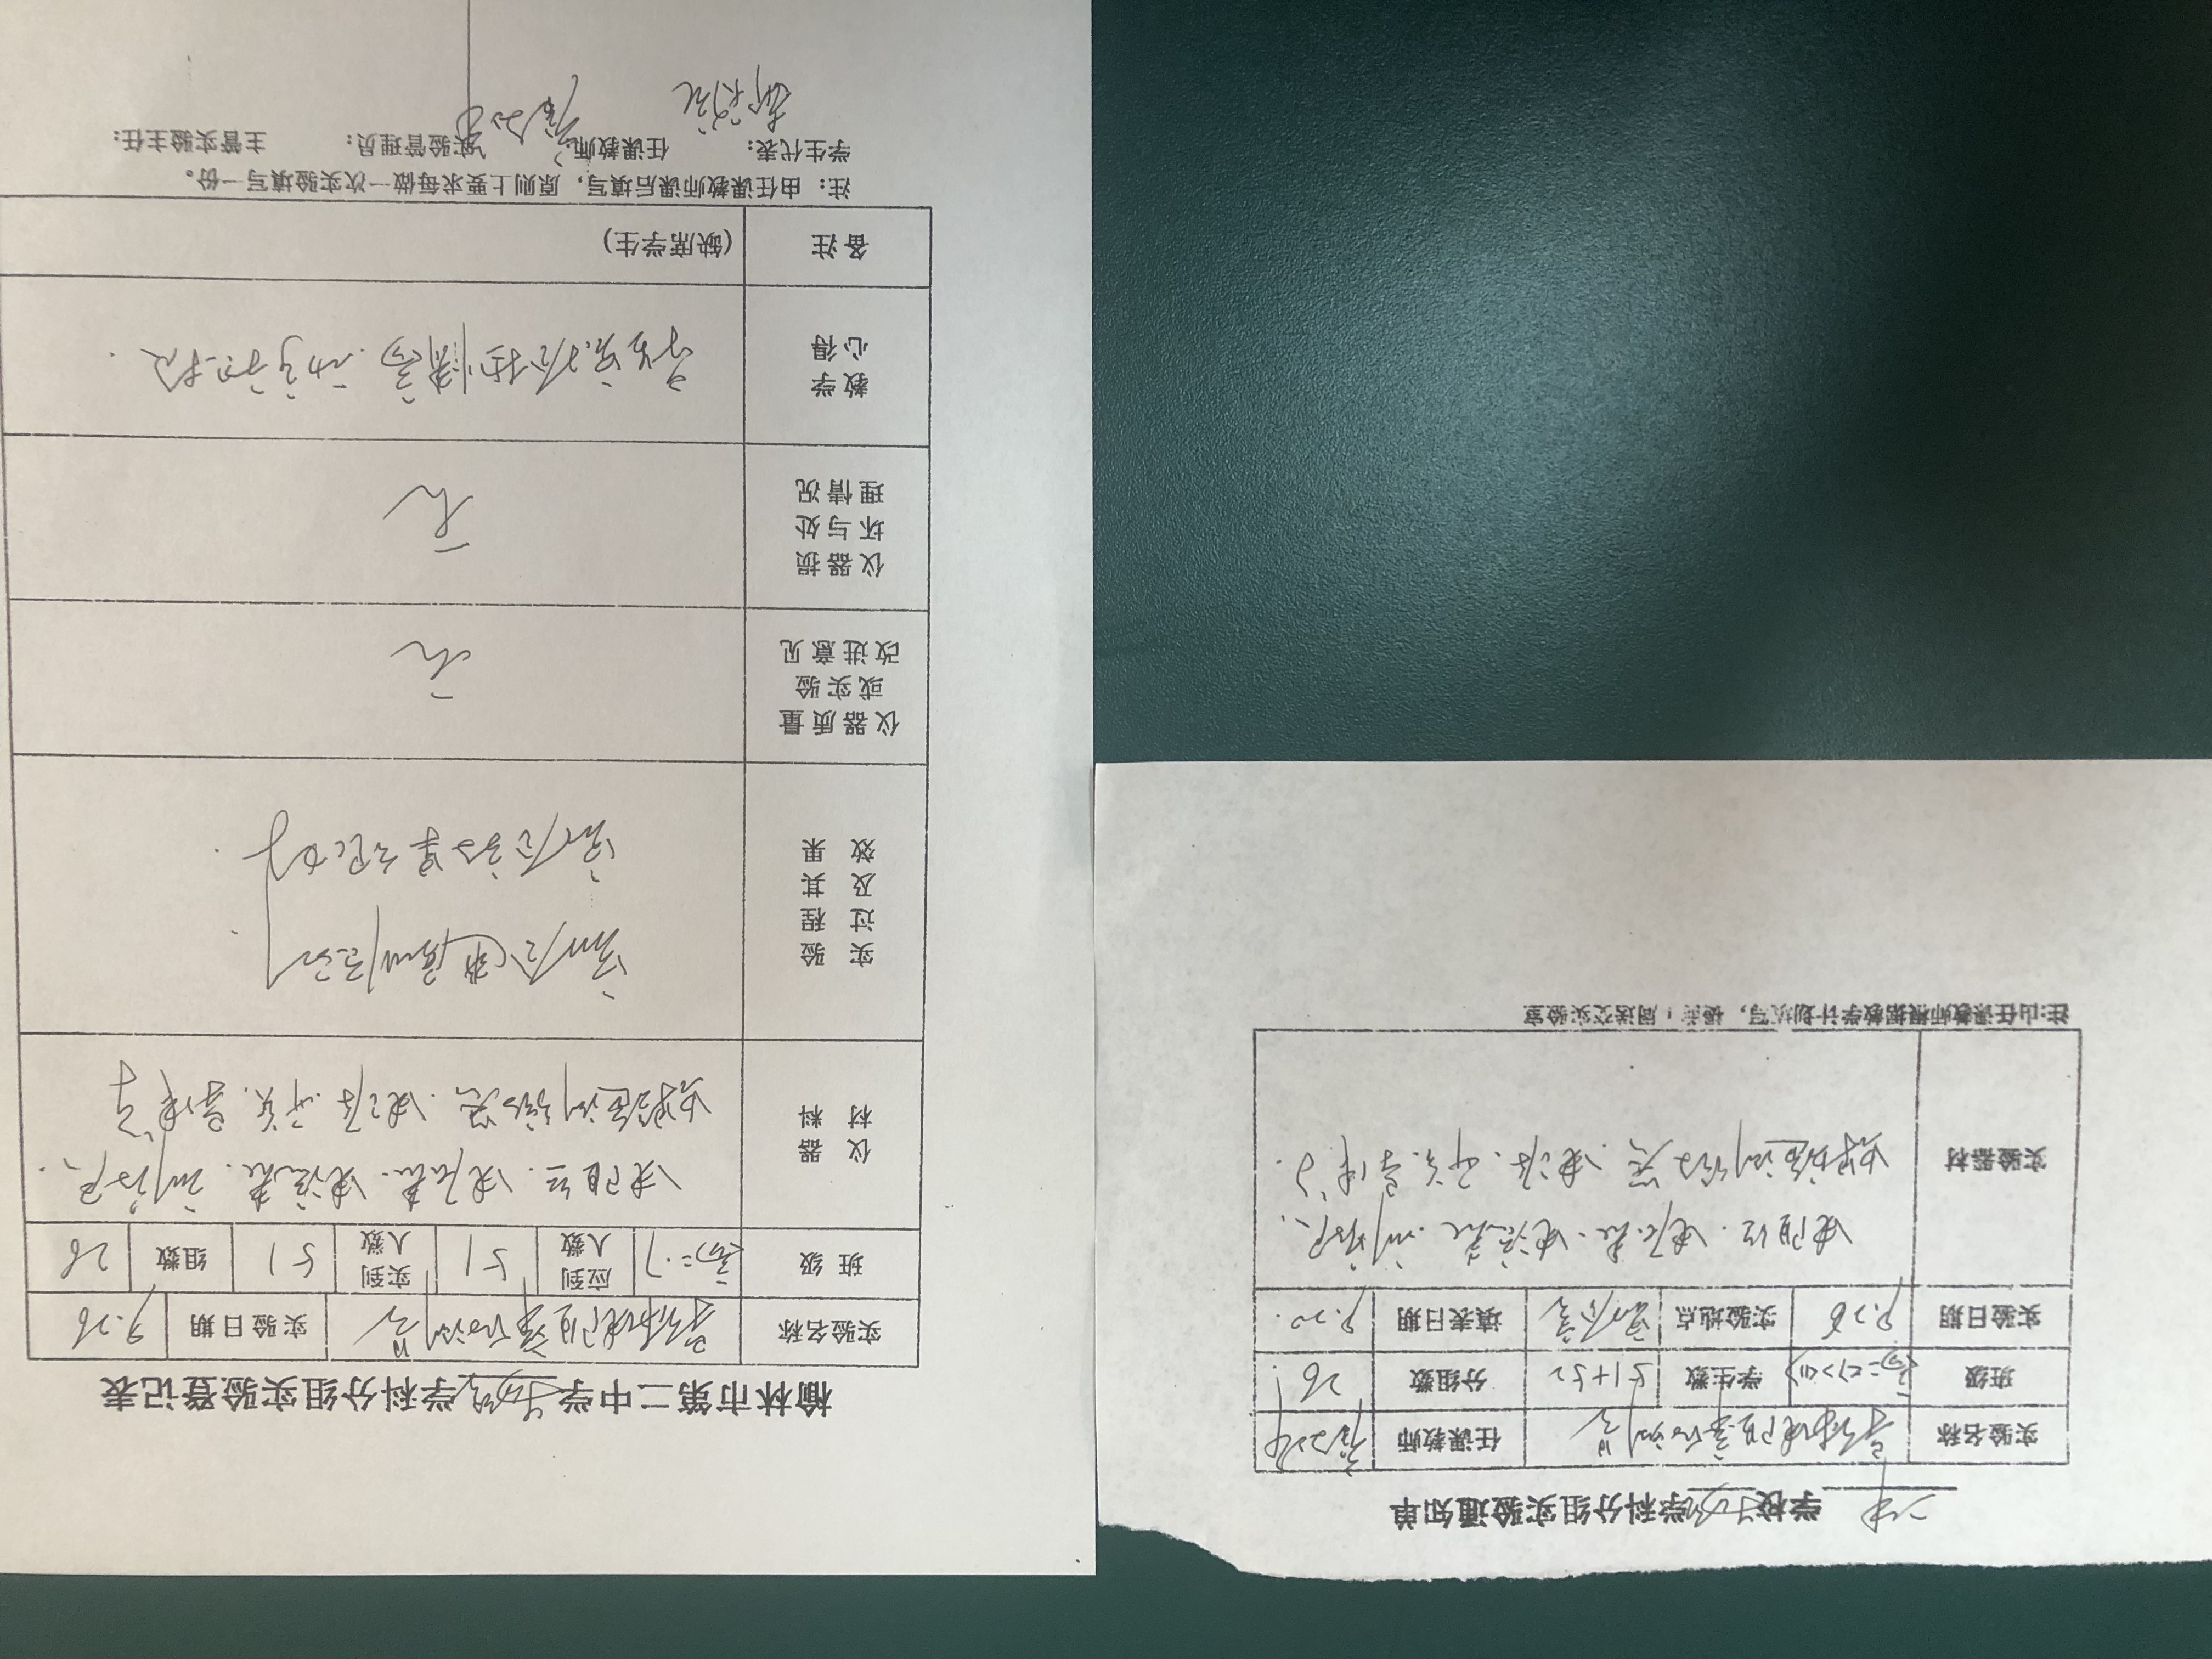 二中学校物理学科分组实验通知单
实验名称 导体电阻率的测量 任课教师
班级 高二<7><4> 学生数 51+52 分组数 26
实验日期 9.26 实验地点 实验室 填表日期 9.20
实验器材 电阻丝、电压表、电流表、刻度尺、
螺旋测微器、电源、开关、导线等.
注:由任课教师根据教学计划填写,提前1周送交实验室
榆林市第二中学物理学科分组实验登记表
实验名称 导体电阻率的测量 实验日期 9.26
班级 高二.7 应到人数 51 实到人数 51 组数 26
仪器材料 电阻丝、电压表、电流表、刻度尺、
螺旋测微器、电源、开关、导线等
实验过程及其效果
实验效果较好.
仪器质量或实验改进意见 无
仪器损坏与处理情况 无
教学心得 学生实验积极性高
备注 (缺席学生)
注:由任课教师课后填写,原则上要求每做一次实验填写一份。
学生代表: 任课教师: 实验管理员: 主管实验主任: